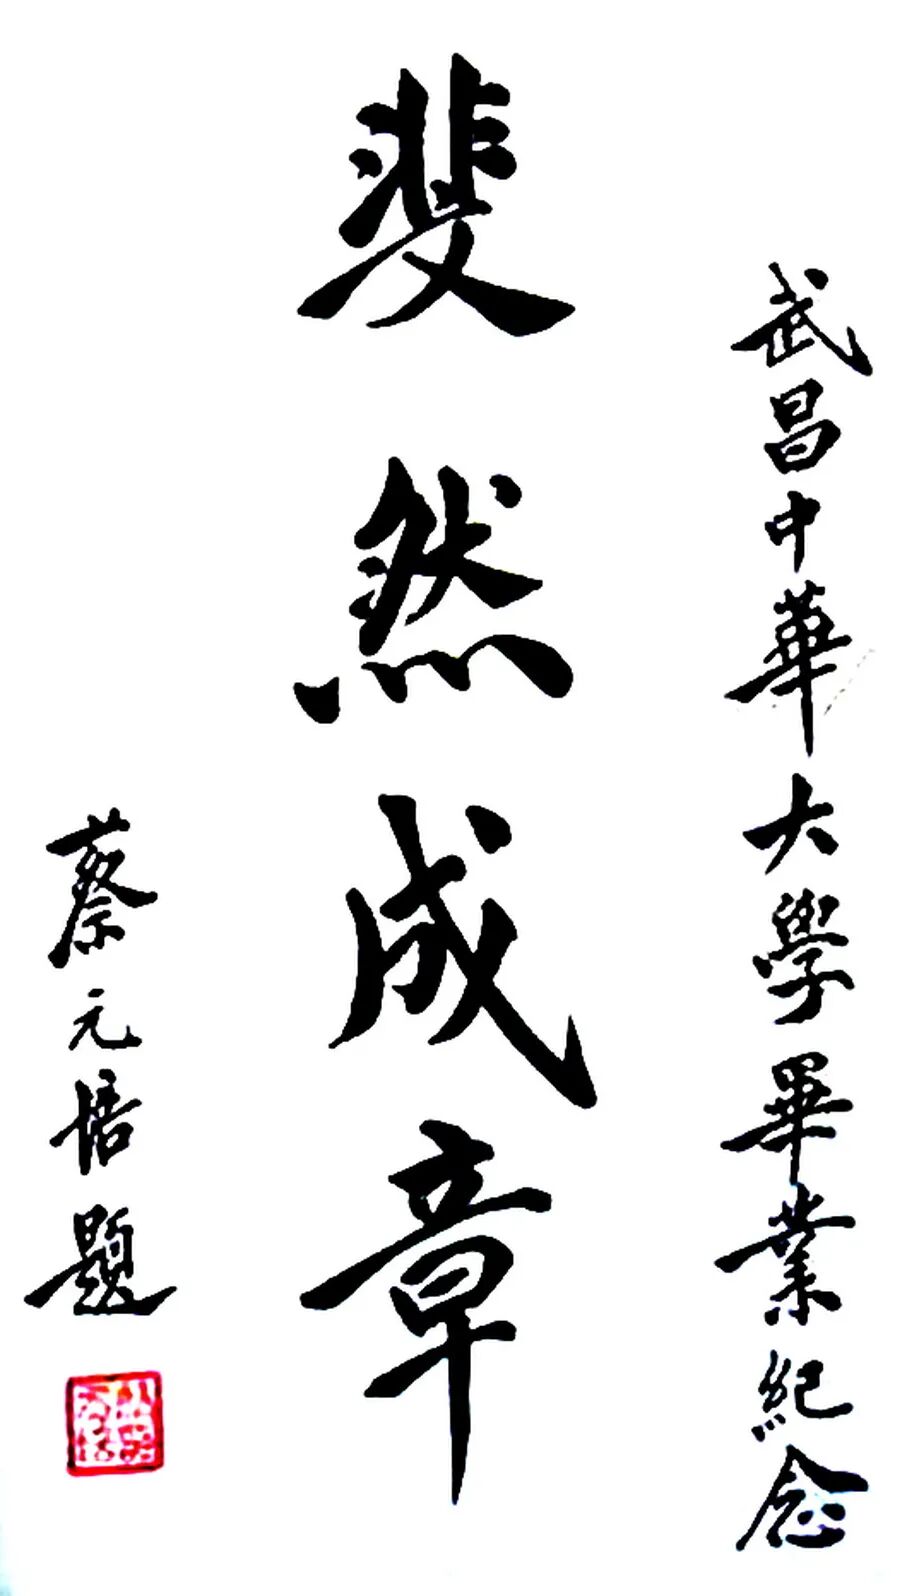 武昌中華大學畢業紀念
斐然成章
蔡元培題